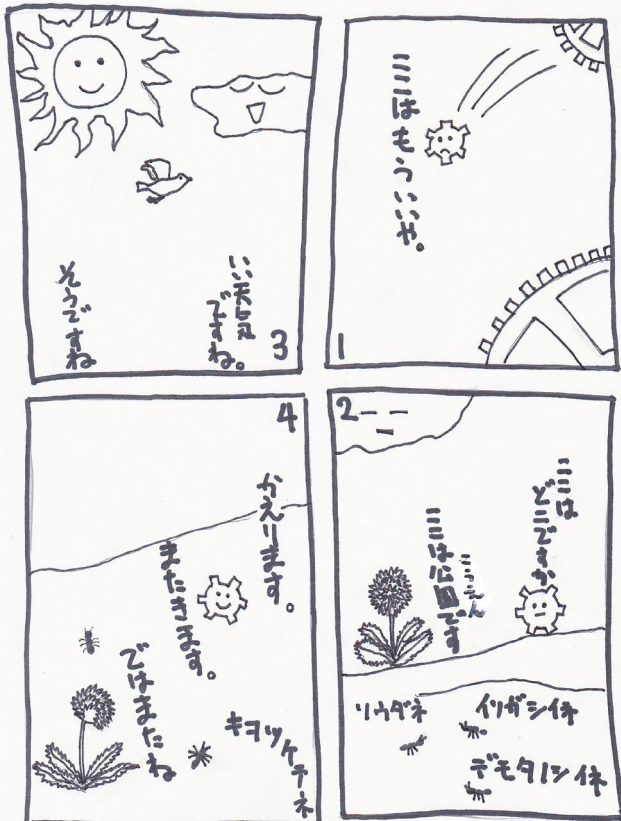 1
ここはもういいや。
2
ここは
どこですか
こうえん
ここは公園です
イソガシイネ
ソウダネ
デモタノシイネ
3
いい天気
ですね。
そうですね
4
かえります。
またきます。
ではまたね
キヲツケテネ